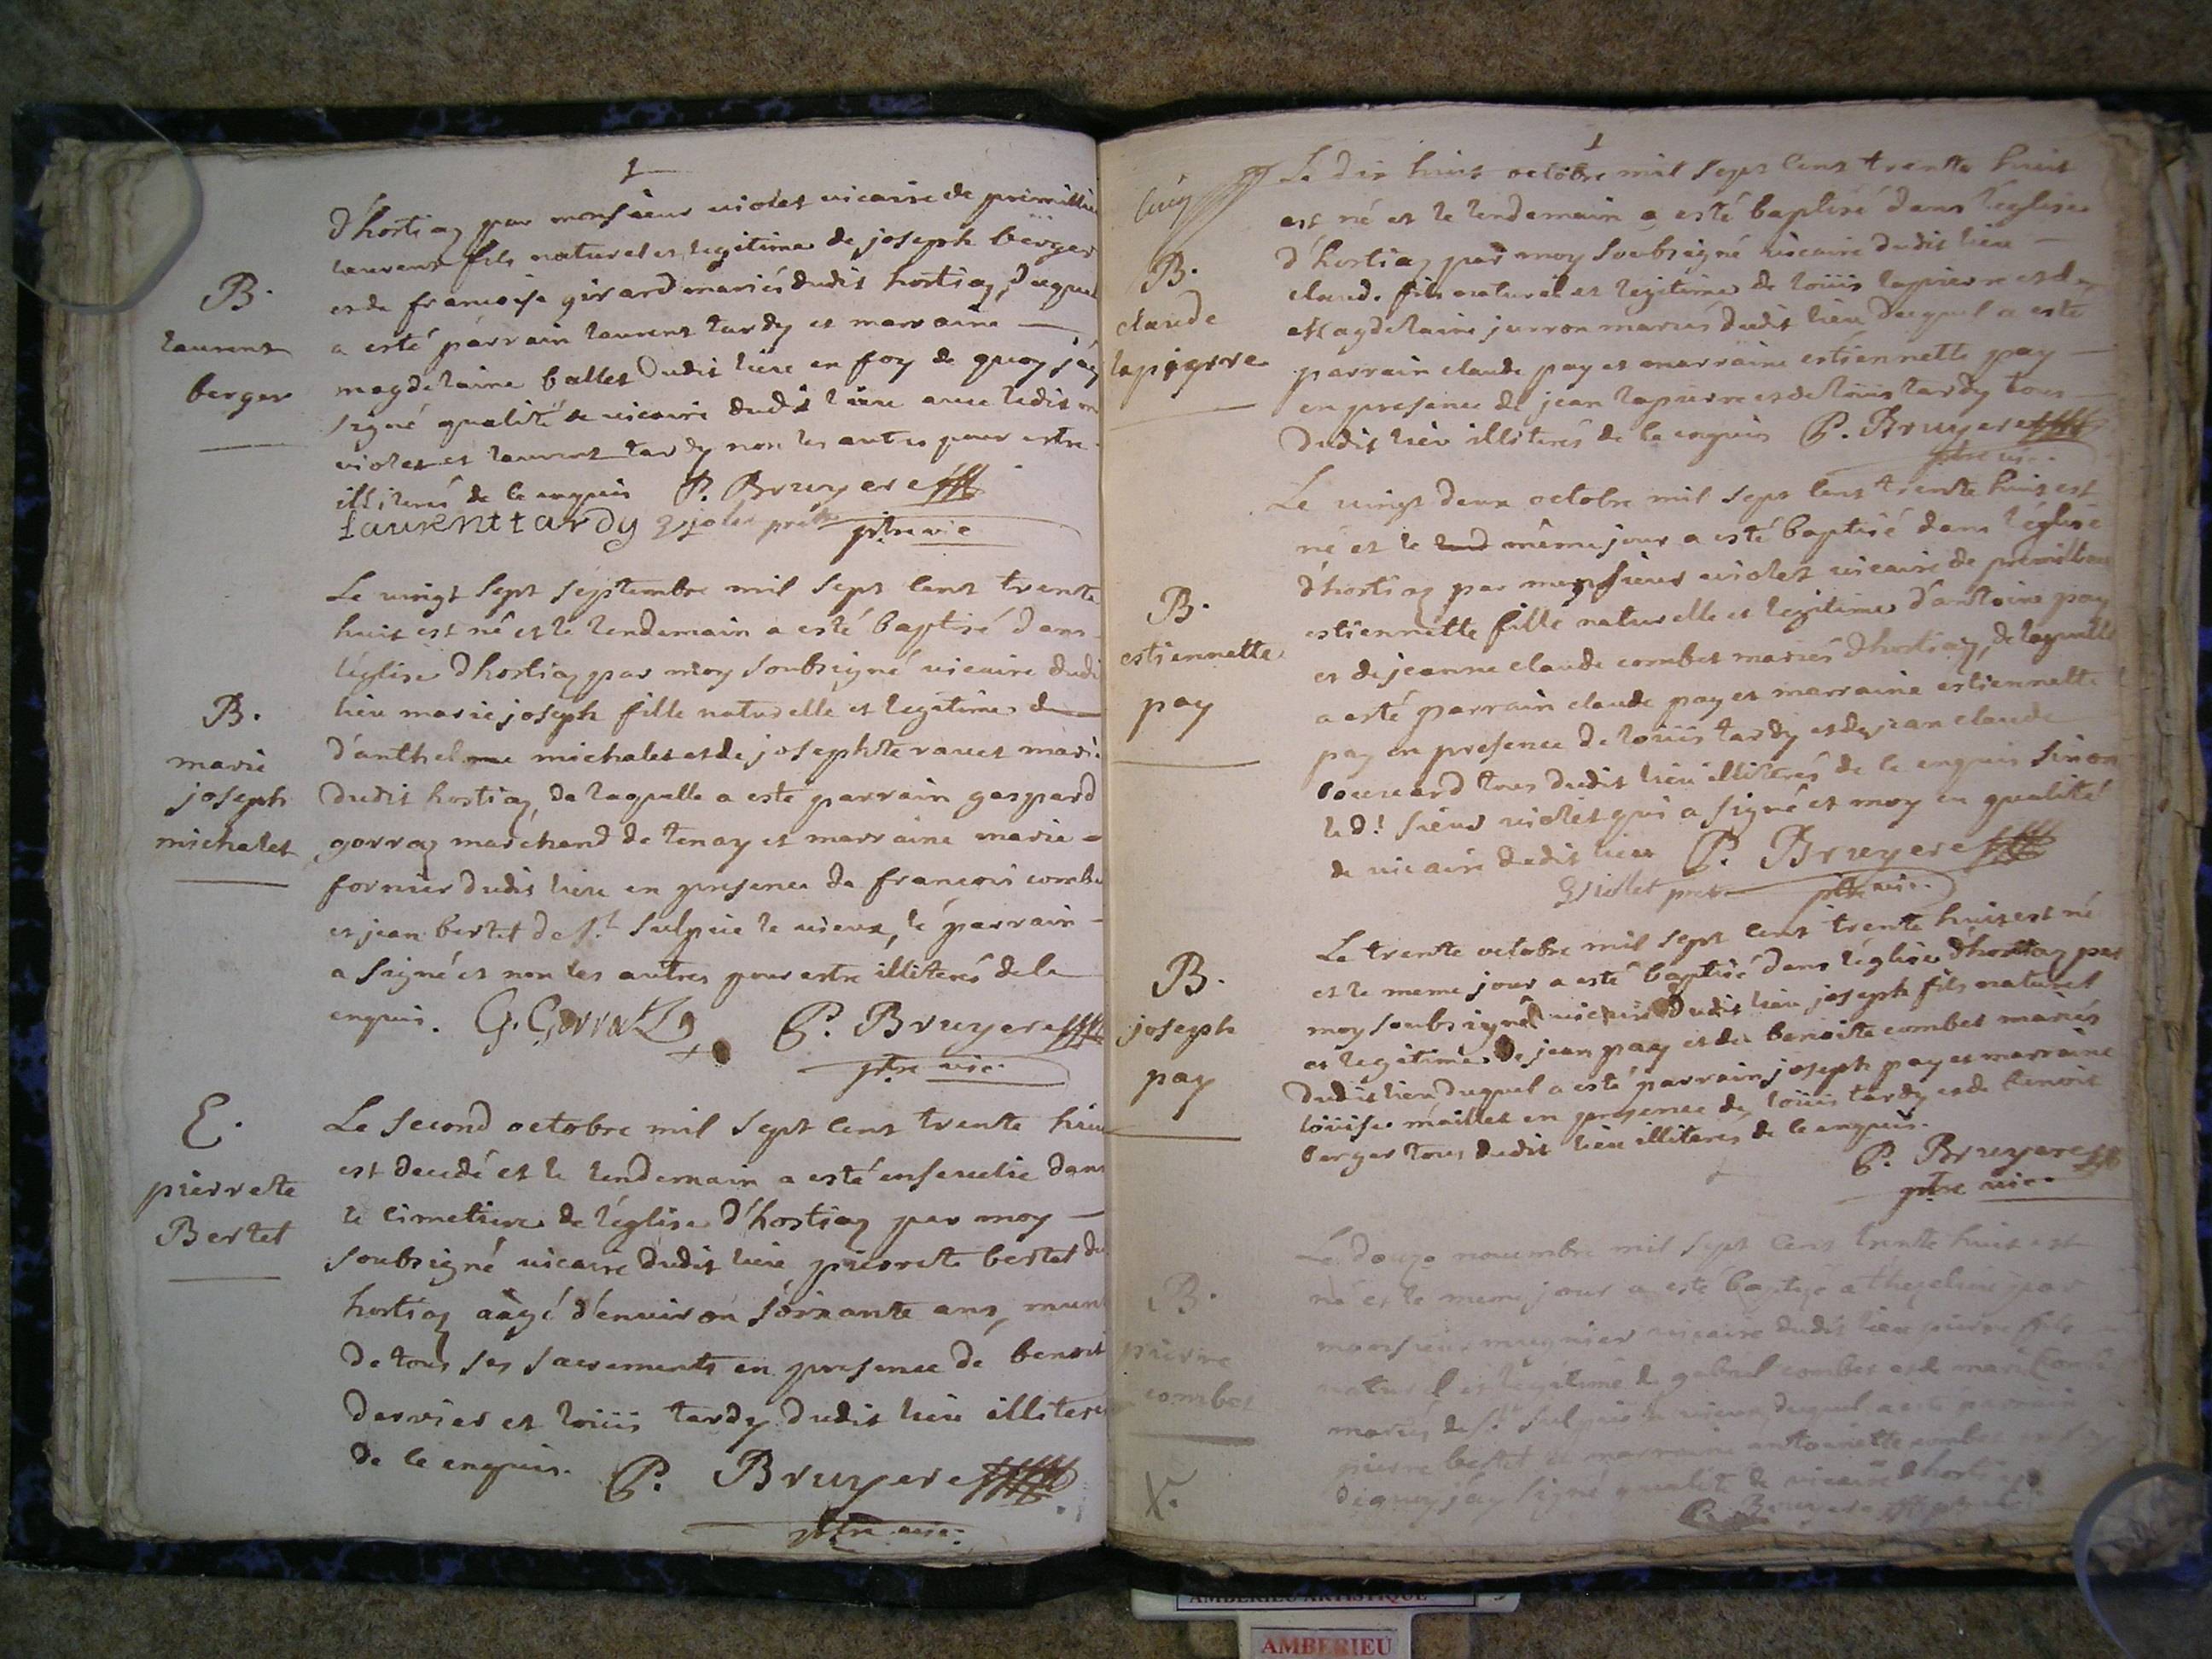 1
d'hostiaz par monsieur violet vicaire de premillieu
laurent fils naturel et legitime de joseph berger
et de francoise girard mariés dudit hostiaz, duquel
a esté parrain laurent tardy et marraine
magdelaine ballet dudit lieu en foy de quoy j'ay
signé qualité de vicaire dudit lieu avec ledit
violet et laurent tardy non les autres pour estre
illiterés de ce enquis P. Bruyere
laurent tardy violet prêtre ptre vic
B.
laurent
berger
Le vingt sept septembre mil sept cent trente
huit est né et le lendemain a esté baptisé dans
l'église d'hostiaz par moy soubsigné vicaire dudit
lieu marie joseph fille naturelle et legitime
d'anthelme michalet et de josephte ravet mariés
dudit hostiaz, de laquelle a esté parrain gaspard
gorraz marchand de tenay et marraine marie
fornier dudit lieu en presence de francois combet
et jean bertet de st sulpice le vieux, le parrain
a signé et non les autres pour estre illiterés de ce
enquis. G. Gorraz P. Bruyere
ptre vic.
B.
marie
joseph
michalet
Le second octobre mil sept cent trente huit
est decedé et le lendemain a esté ensevelie dans
le cimetiere de l'église d'hostiaz par moy
soubsigné vicaire dudit lieu pierrete bertet de
hostiaz aàgé d'environ soixante ans, muni
de tous ses sacrements en presence de benoit
dervier et loüis tardy dudit lieu illiterés
de ce enquis. P. Bruyere
ptre vic.
E.
pierrete
Bertet
1
cinq
Le dix huit octobre mil sept cent trente huit
est né et le lendemain a esté baptisé dans l'église
d'hostiaz par moy soubsigné vicaire dudit lieu
claude fils naturel et legitime de loüis lapierre et de
Magdelaine jurron mariés dudit lieu duquel a esté
parrain claude pay et marraine estiennette pay
en presence de jean lapierre et de loüis tardy tous
dudit lieu illiterés de ce enquis P. Bruyere
ptre vic.
B.
claude
lapierre
Le vingt deux octobre mil sept cent trente huit est
né et le lend même jour a esté baptisé dans l'église
d'hostiaz par monsieur violet vicaire de premillieu
estiennette fille naturelle et legitime d'antoine pay
et de jeanne claude combet mariés d'hostiaz, de laquelle
a esté parrain claude pay et marraine estiennette
pay en presence de loüis tardy et de jean claude
dudit lieu illiterés de ce enquis sinon
led.t sieur violet qui a signé et moy en qualité
de vicaire dudit lieu P. Bruyere
violet pretre ptre vic.
B.
estiennette
pay
Le trente octobre mil sept cent trente huit est né
et le meme jour a esté baptisé dans l'église d'hostiaz par
moy soubsigné vicaire dudit lieu joseph fils naturel
et legitime de jean pay et de benoite combet mariés
dudit lieu duquel a esté parrain joseph pay et marraine
loüise maillet en presence de loüis tardy et de benoit
berger tous dudit lieu illiterés de ce enquis.
P. Bruyere
ptre vic.
B.
joseph
pay
Le douze novembre mil sept cent trente huit est
né et le meme jour a esté baptizé a thezelieu par
monsieur mugnier vicaire dudit lieu pierre fils
naturel et legitime de gabriel combet et de marie
mariés de st sulpice le vieux, duquel a esté parrain
pierre bertet et marraine antoinette combet
de quoy j'ay signé qualité de vicaire d'hostiaz
P. Bruyere
B.
pierre
combet
X.
AMBERIEU ARTISTIQUE
AMBERIEU